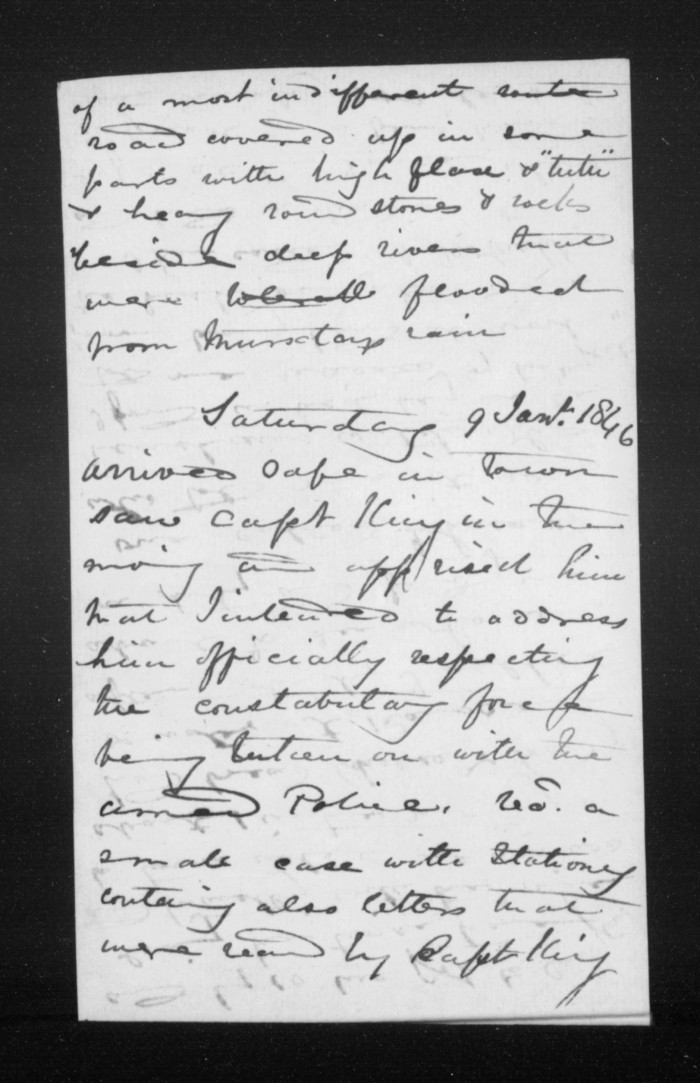 of a most indifferent route
road covered up in some
parts with high flax & "tutu"
& heavy round stones & rocks
beside deep rivers that
were flooded
from Thursdays rain
Saturday 9 Jany. 1846
arrived safe in Town
saw Capt King in the
moing and apprised him
that I intended to address
him officially respecting
the constabulary force
being taken on with the
armed Police. recd. a
small case with Stationey
containg also letters that
were read by Capt King